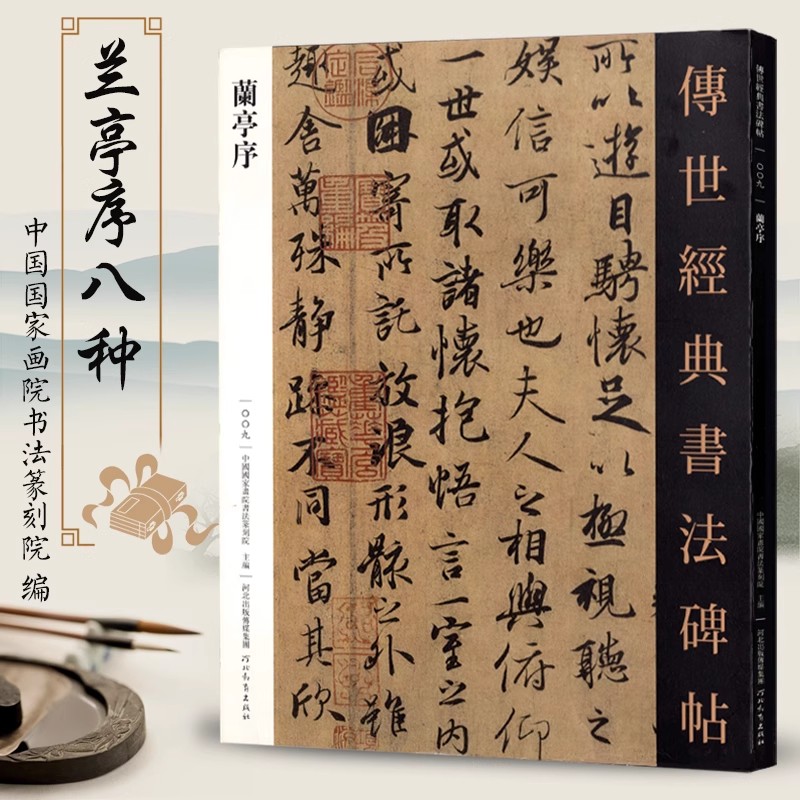 兰亭序八种
中国国家画院书法篆刻院 编
傳世經典書法碑帖
所以遊目騁懷足以極視聽之
娛信可樂也夫人之相與俯仰
一世或取諸懷抱悟言一室之内
或因寄所託放浪形骸之外雖
趣舍萬殊静躁不同當其欣
蘭亭序
〇〇九
中國國家畫院書法篆刻院 主編
河北出版傳媒集團
河北教育出版社
傳世經典書法碑帖
〇〇九
蘭亭序
中國國家畫院書法篆刻院 主編
河北出版傳媒集團
河北教育出版社